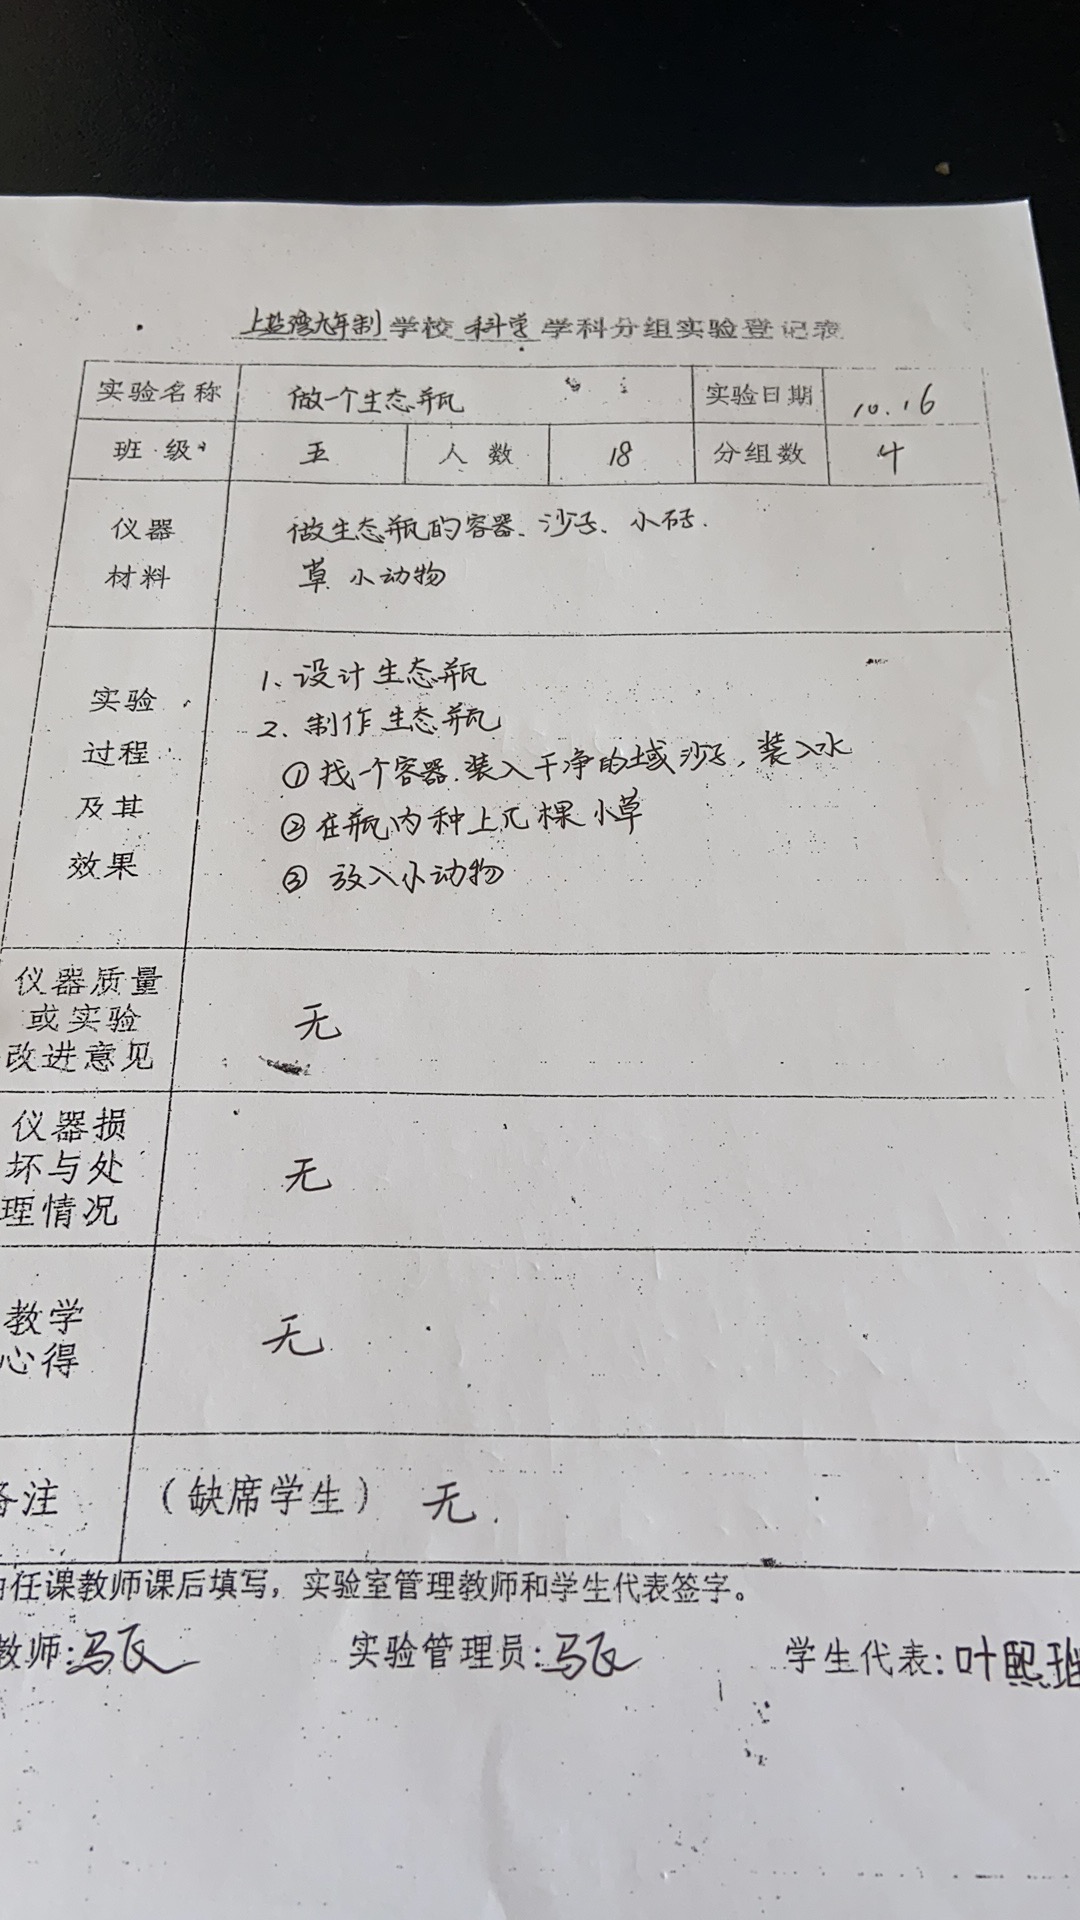 上盐湾九年制学校科学学科分组实验登记表
实验名称 做一个生态瓶 实验日期 10.16
班级 五 人数 18 分组数 4
仪器 做生态瓶的容器、沙子、小石子.
材料 草 小动物
1、设计生态瓶
实验
2、制作生态瓶
过程 ①找个容器.装入干净的域沙子,装入水
及其 ②在瓶内种上几棵小草
效果 ③ 放入小动物
仪器质量
或实验 无
改进意见
仪器损
坏与处 无
理情况
教学 无
心得
备注 (缺席学生) 无.
由任课教师课后填写,实验室管理教师和学生代表签字。
教师: 实验管理员: 学生代表:叶熙